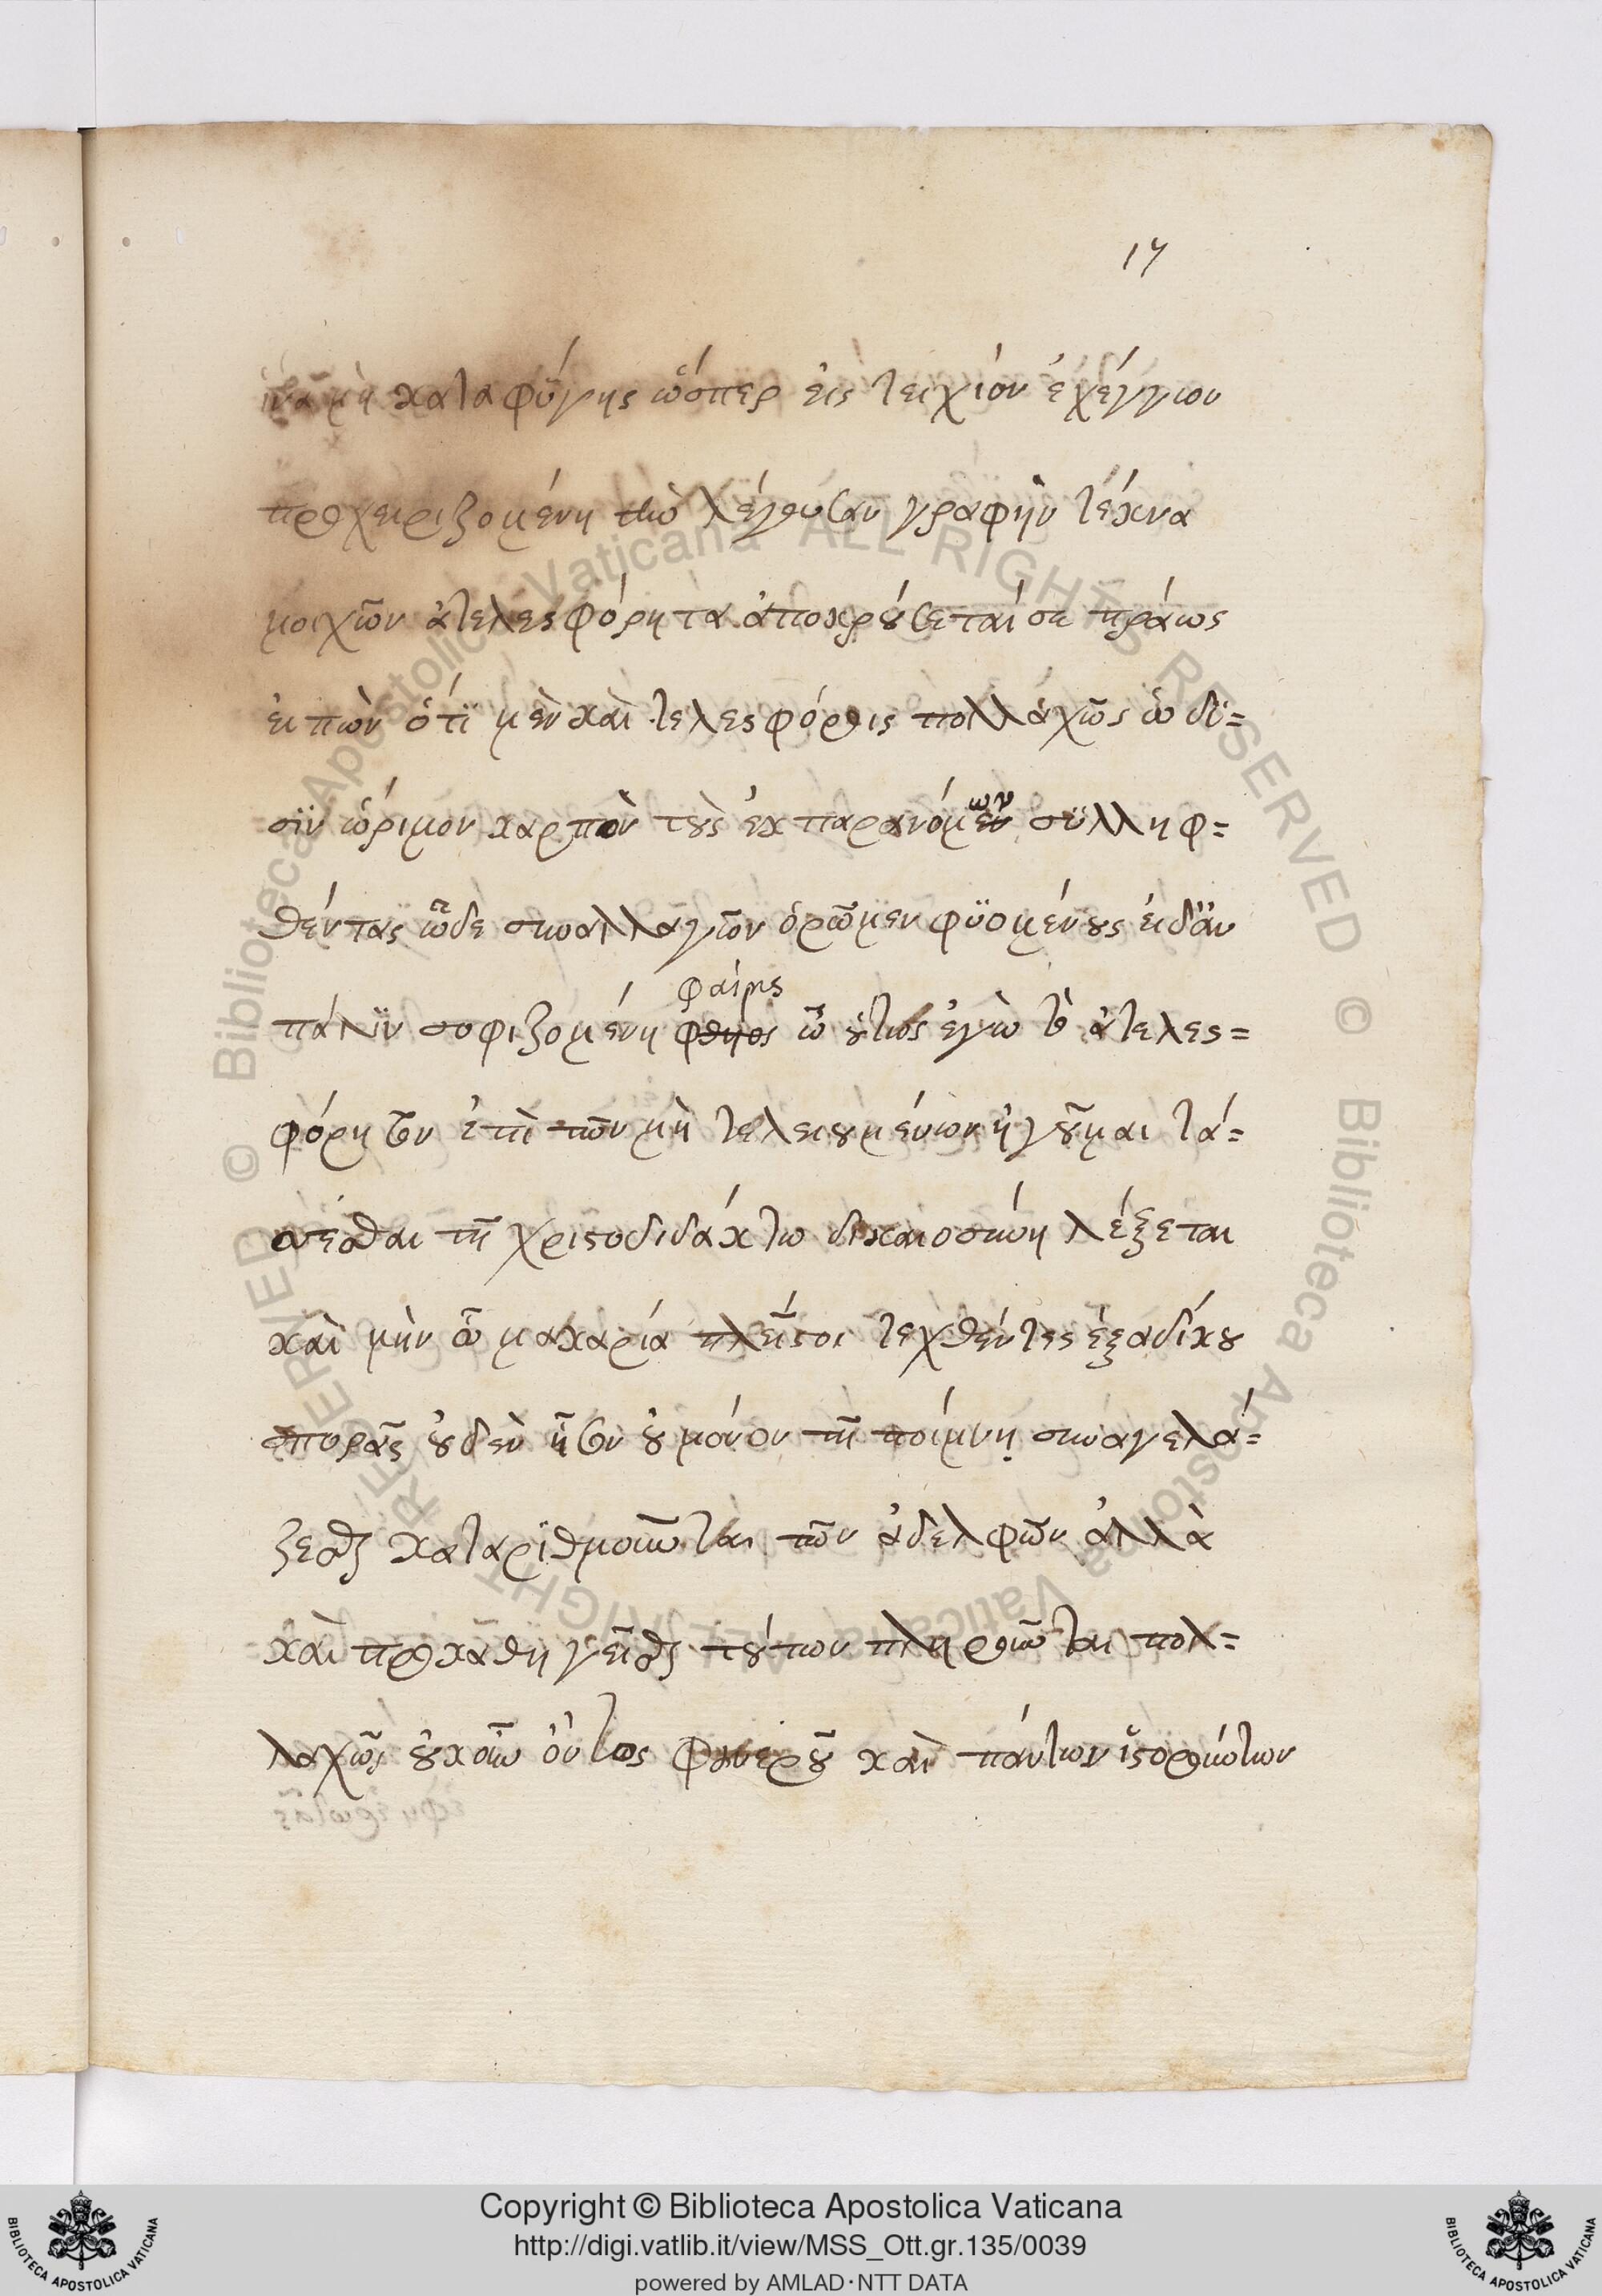 17
ἵνα μὴ καταφύγης ὥσπερ εἰς τειχίον ἐχέγγυον
προχειριζομένη τὴν λέγουσαν γραφὴν τέκνα
μοιχῶν ἀτελεσφόρητα ἀποκρούσεταί σε πράως
εἰπὼν ὅτι μὲν καὶ τελεσφόροις πολλαχῶς ὠδῖ=
σιν ὥριμον καρπὸν τοὺς ἐκ παρανόμων συλληφ=
θέντας ὧδε συναλλαγῶν ὁρῶμεν φυομένους εἰδἂν
πάλιν σοφιζομένη φαίης ὦ οὗτος ἐγὼ τὸ ἀτελεσ=
φόρητον ἐπὶ τῶν μὴ τελειουμένων ἡγοῦμαι τά=
ττεσθαι τῇ χριστοδιδάκτω δικαιοσύνη λέξεται
καὶ μὴν ὦ μακαρία πλεῖστοι τεχθέντες ἐξ ἀδίκου
σπορᾶς οὐδὲν ἧττον οὐ μόνον τῇ ποίμνῃ συναγελά=
ζεσθαι καταριθμοῦνται τῶν ἀδελφῶν ἀλλὰ
καὶ προκαθηγεῖσθαι τούτων πληροῦνται πολ=
λαχῶς οὐκοῦν ὄντος φανεροῦ καὶ πάντων ἱστορούντων
Copyright © Biblioteca Apostolica Vaticana
http://digi.vatlib.it/view/MSS_Ott.gr.135/0039
powered by AMLAD·NTT DATA
BIBLIOTECA APOSTOLICA VATICANA
BIBLIOTECA APOSTOLICA VATICANA
© Biblioteca Apostolica Vaticana ALL RIGHTS RESERVED © Biblioteca Apostolica Vaticana ALL RIGHTS RESERVED